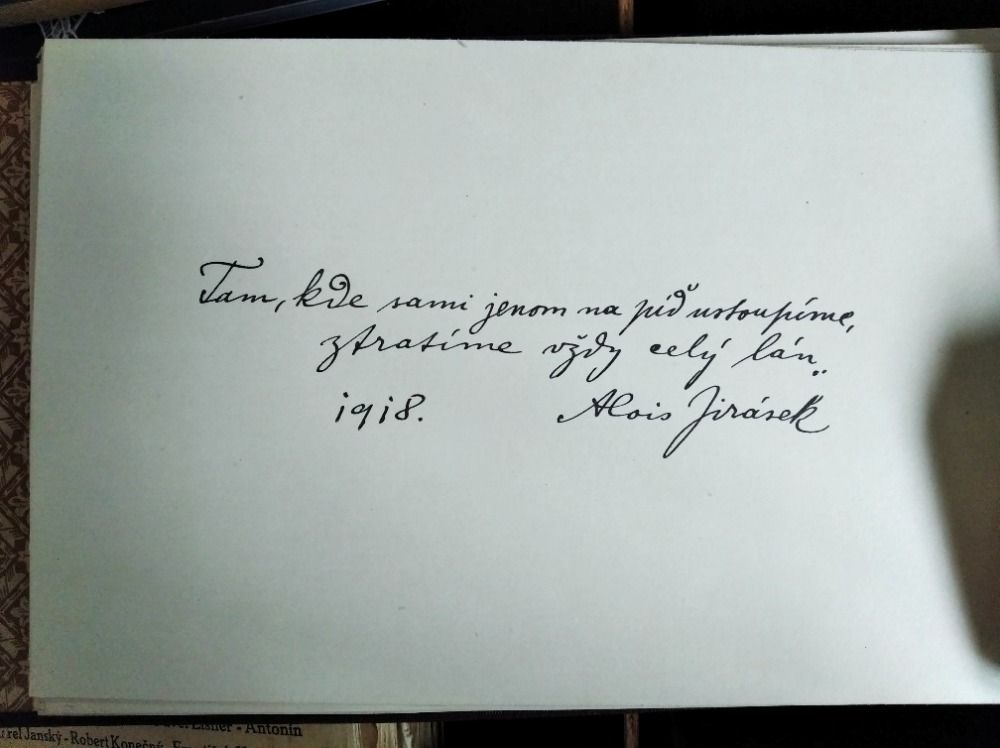 Tam, kde sami jenom na píď ustoupíme,
ztratíme vždy celý lán..
1918. Alois Jirásek
Eisner - Antonín
Karel Janský - Robert Konečný -